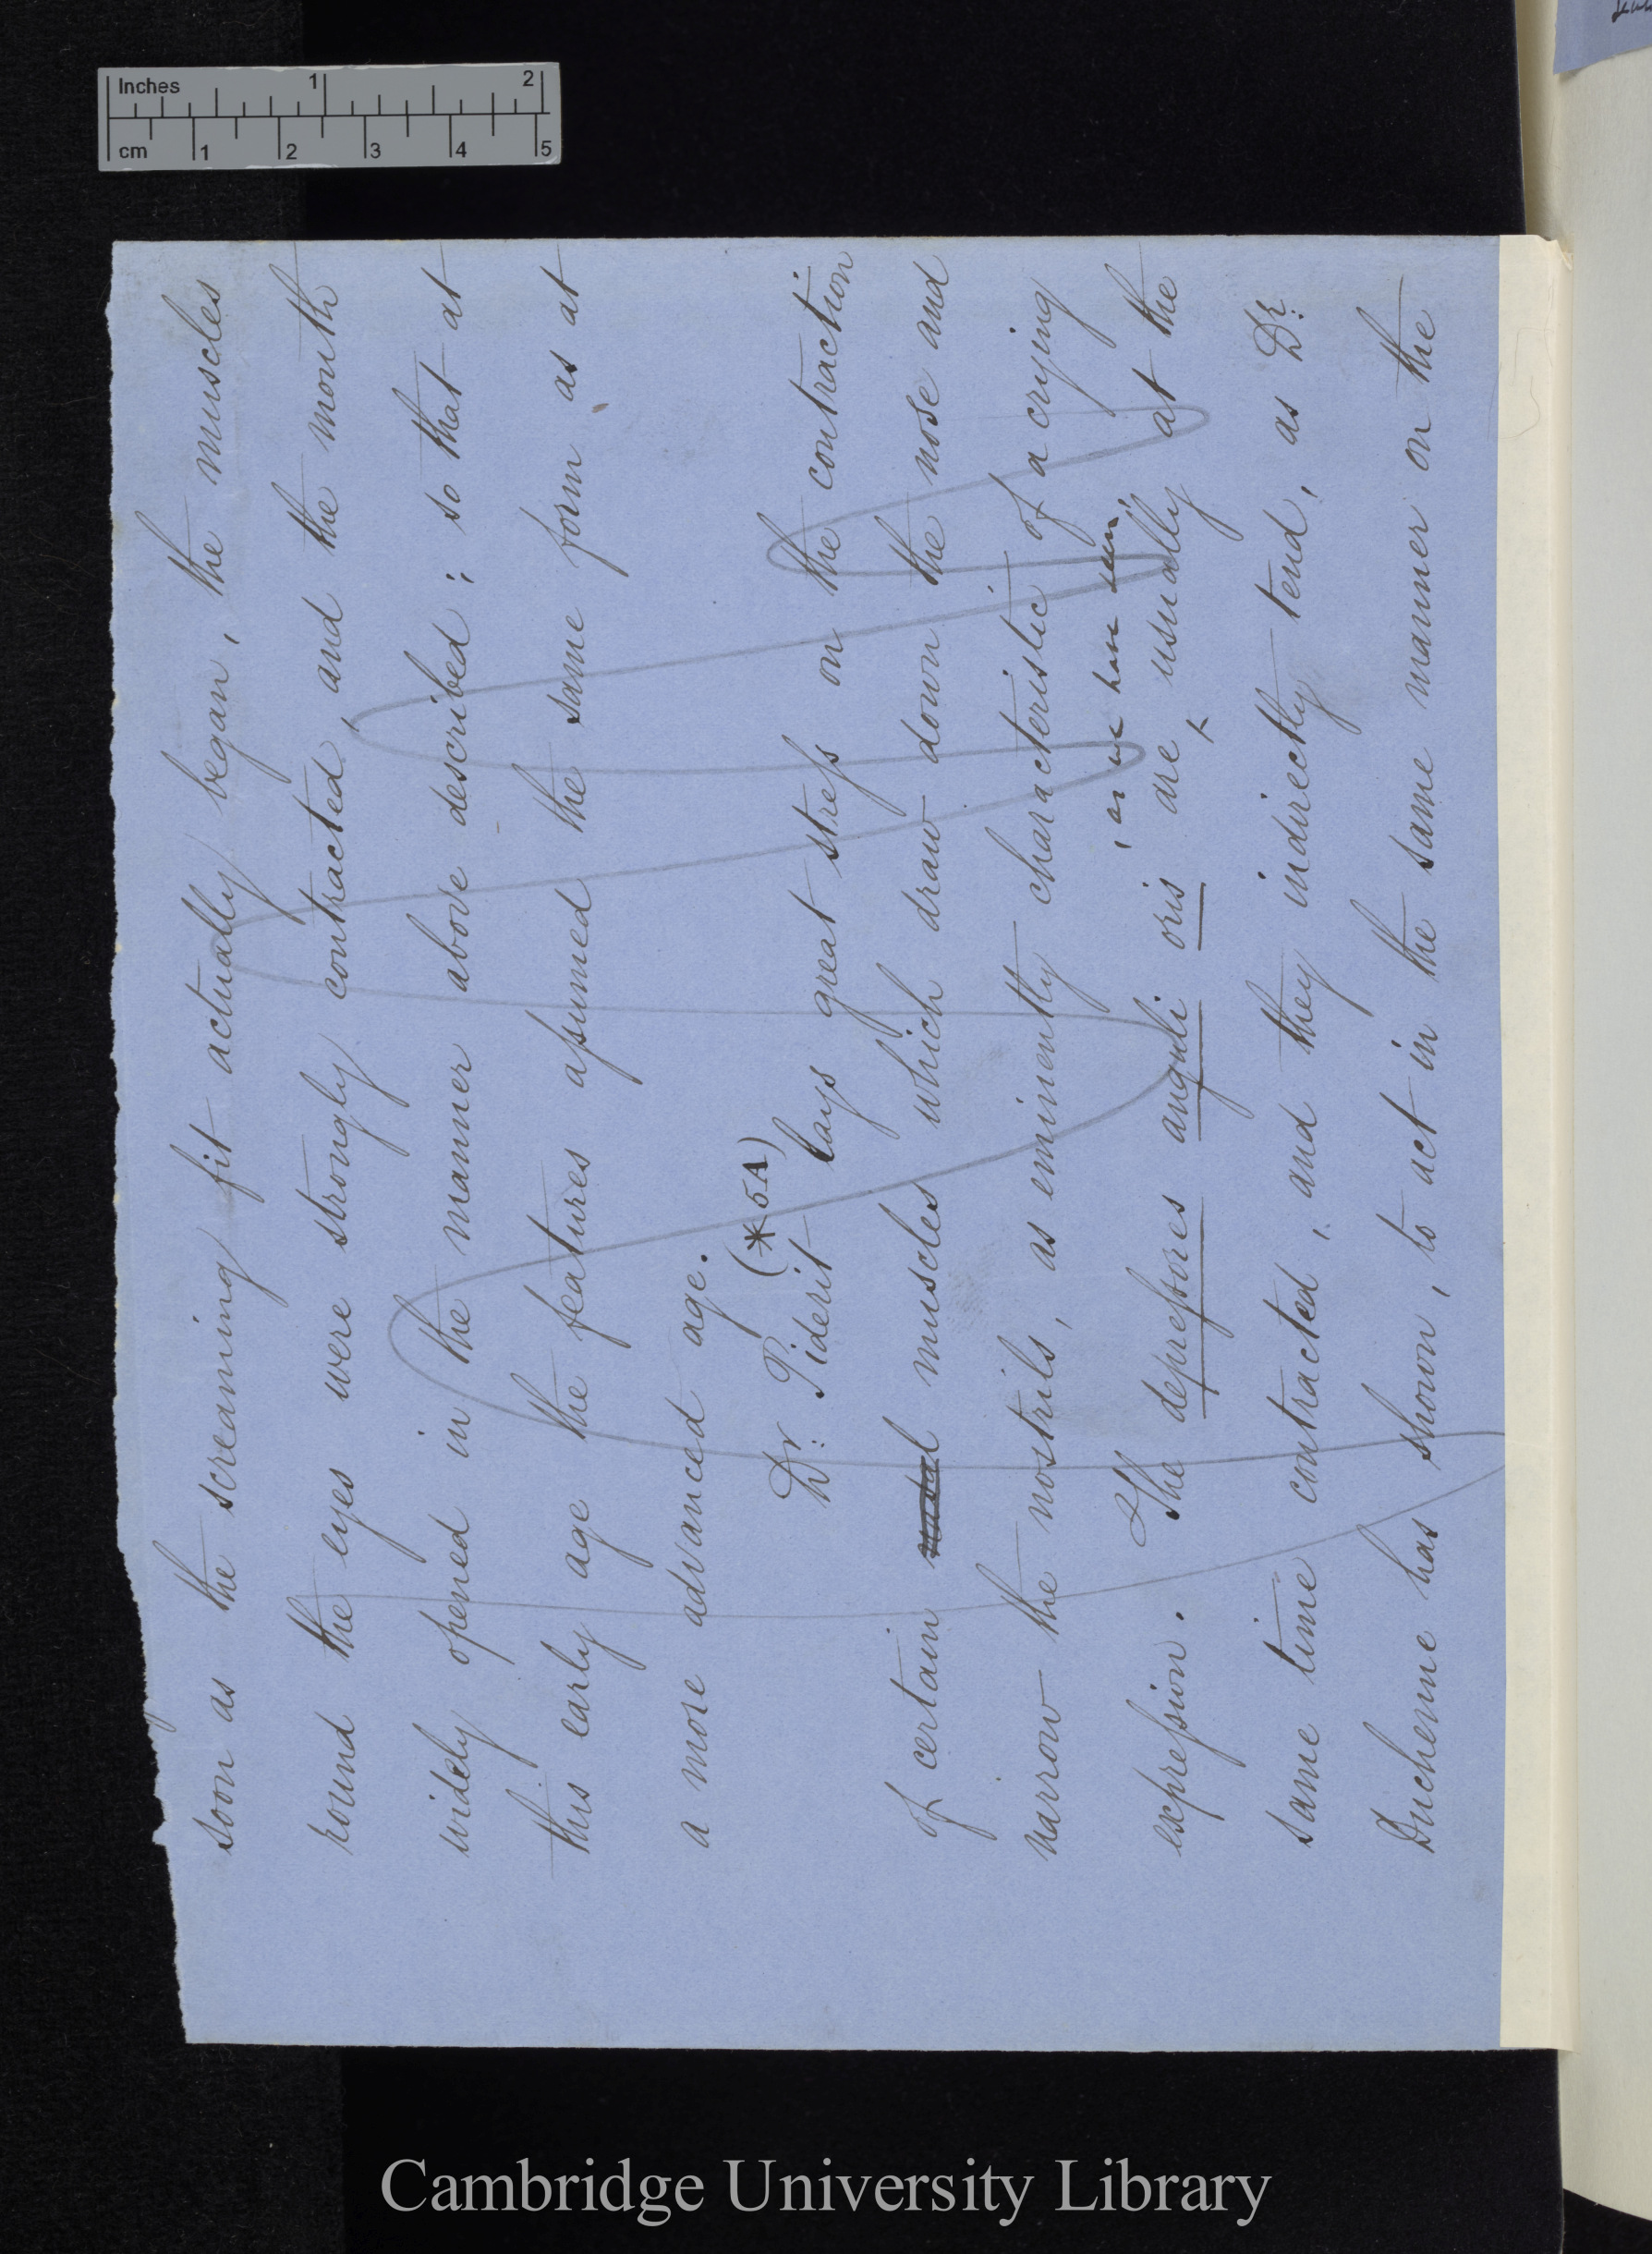 Inches 1 2
cm 1 2 3 4 5
soon as the screaming fit actually began, the muscles
round the eyes were strongly contracted, and the mouth
widely opened in the manner above described; so that at
this early age the features assumed the same form as at
a more advanced age.
(*5A)
Dr. Piderit lays great stress on the contraction
of certain nasal muscles which draw down the nose and
narrow the nostrils, as eminently characteristic of a crying
, as we have seen,
expression. The depressores anguli oris are usually at the
same time contracted, and they indirectly tend, as Dr.
Duchenne has shown, to act in the same manner on the
Cambridge University Library